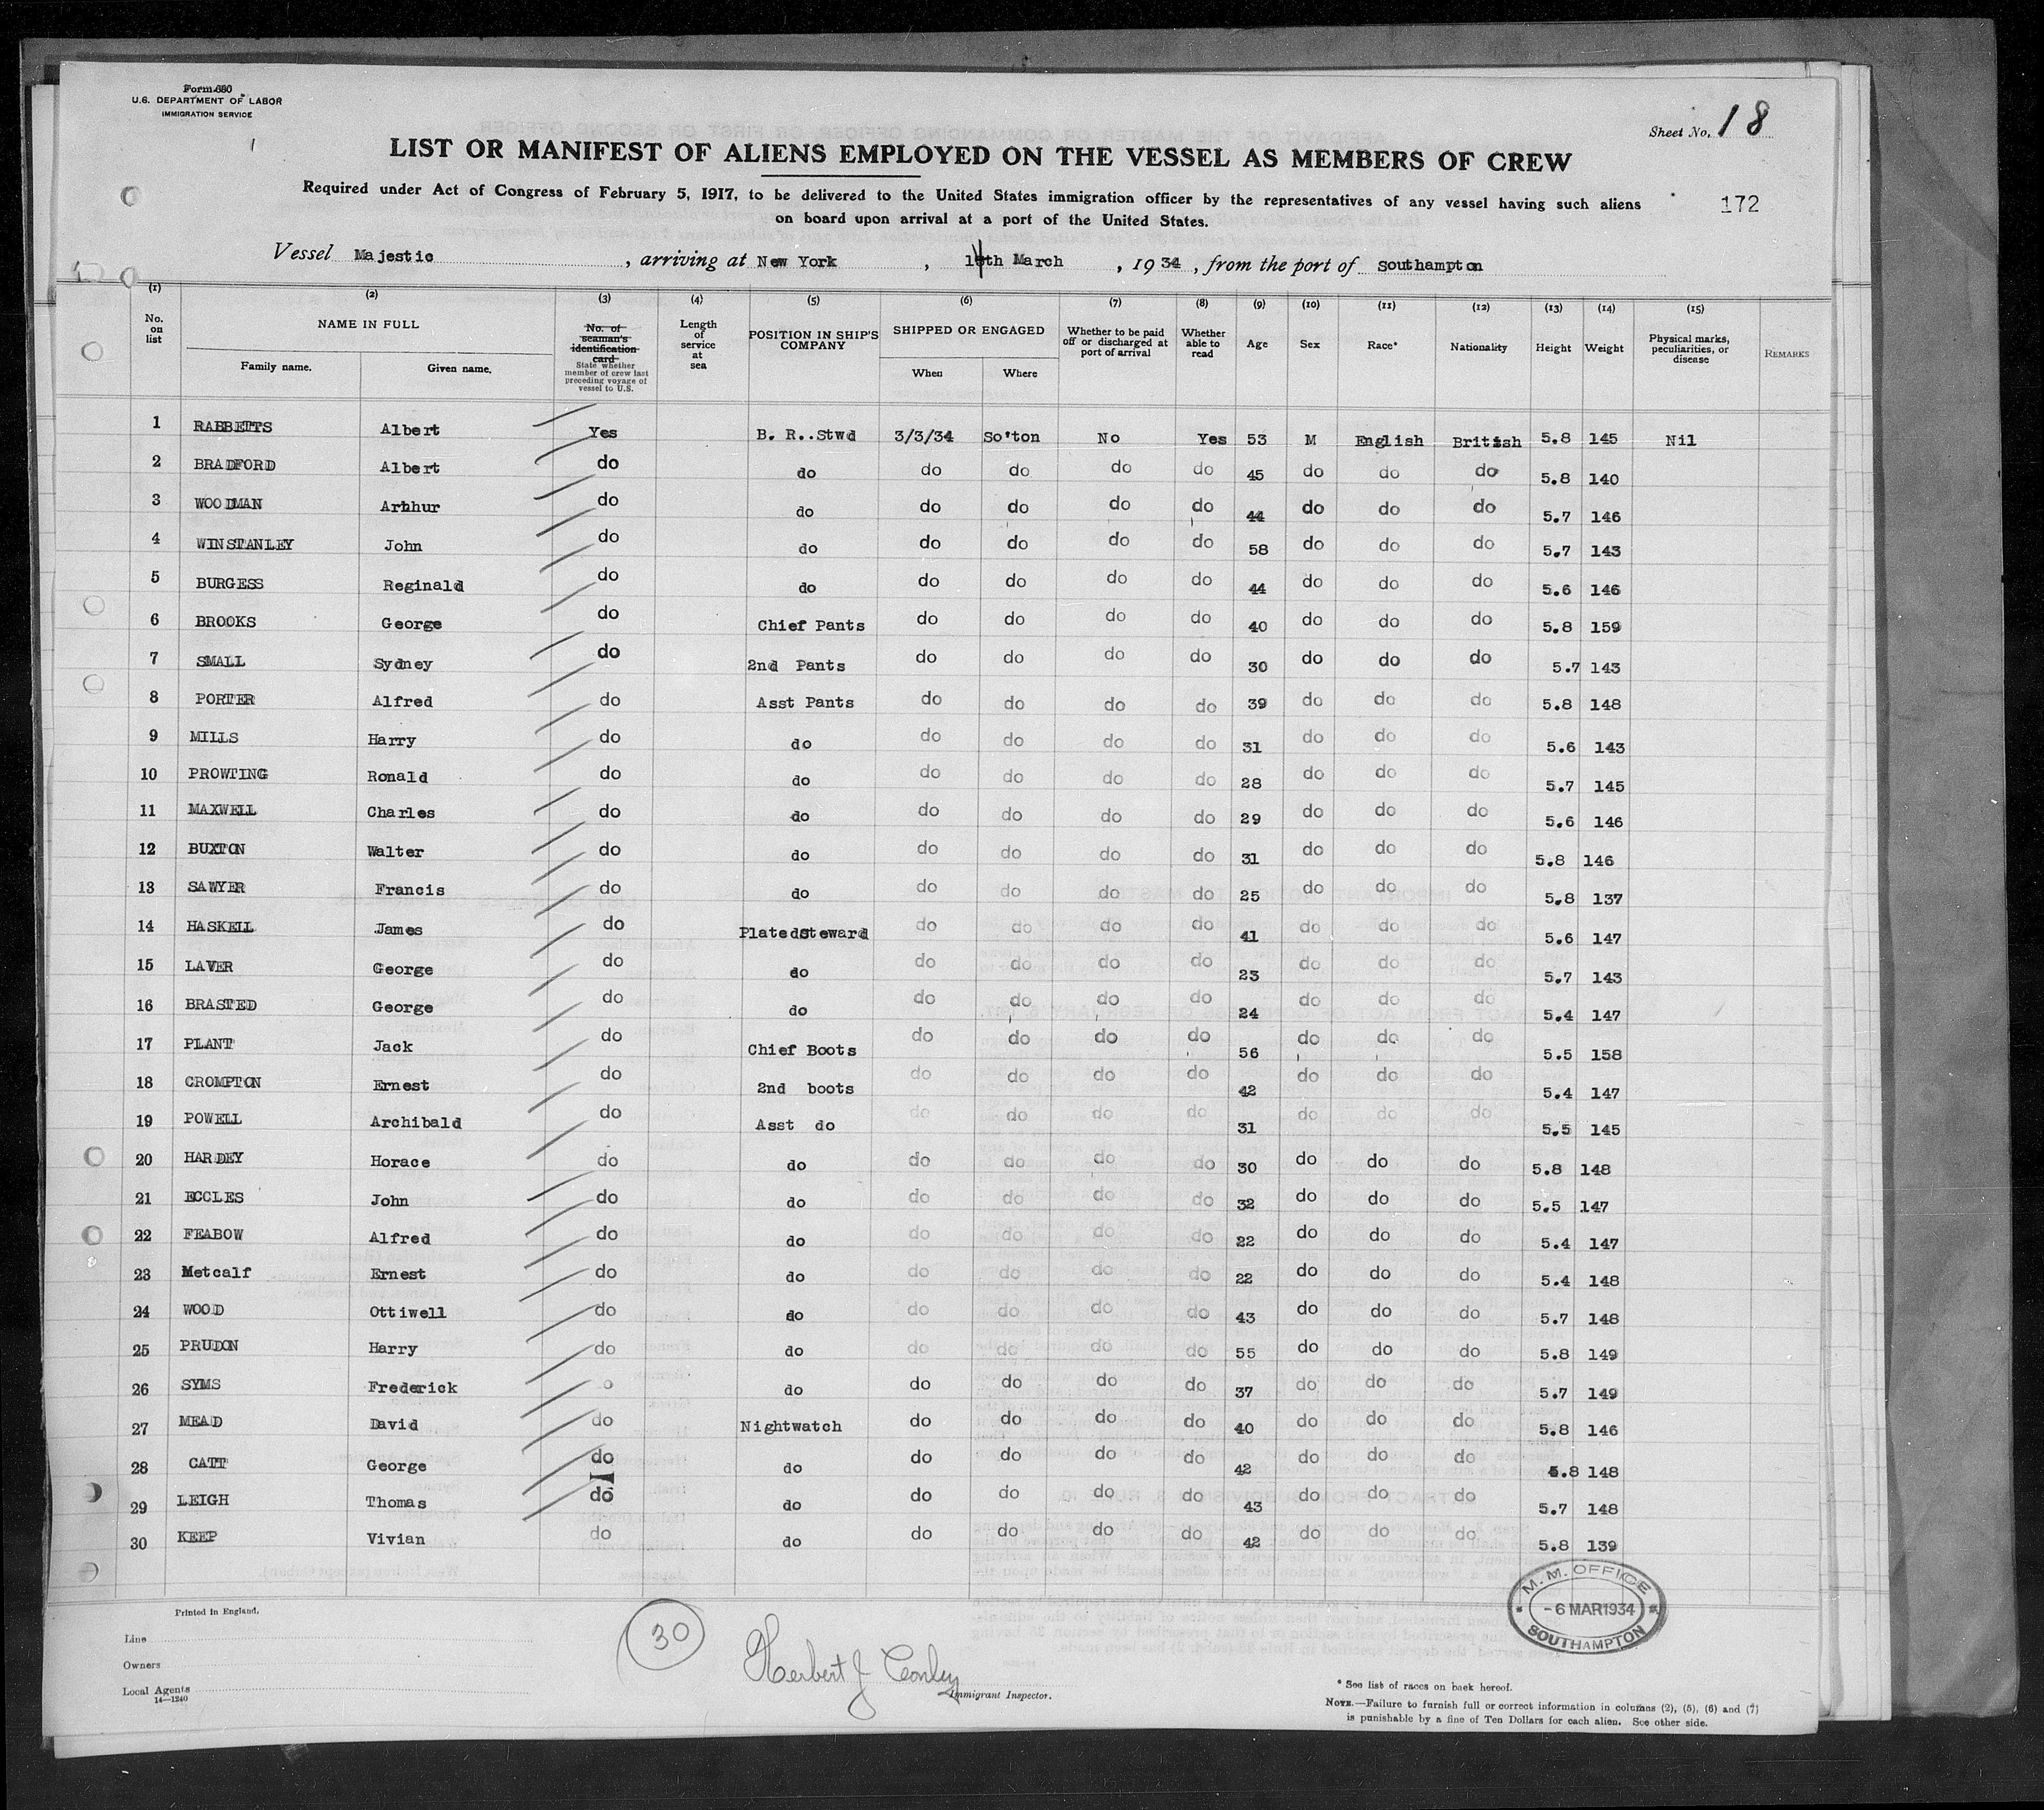 Form 680
U.S. DEPARTMENT OF LABOR
IMMIGRATION SERVICE
Sheet No. 18
LIST OR MANIFEST OF ALIENS EMPLOYED ON THE VESSEL AS MEMBERS OF CREW
Required under Act of Congress of February 5, 1917, to be delivered to the United States immigration officer by the representatives of any vessel having such aliens
on board upon arrival at a port of the United States.
172
Vessel Majestic, arriving at New York, 14th March, 1934, from the port of Southampton
(1) (2) (3) (4) (5) (6) (7) (8) (9) (10) (11) (12) (13) (14) (15)
No. on list NAME IN FULL Family name. Given name. No. of seaman's identification card State whether member of crew last preceding voyage of vessel to U.S. Length of service at sea POSITION IN SHIP'S COMPANY SHIPPED OR ENGAGED When Where Whether to be paid off or discharged at port of arrival Whether able to read Age Sex Race* Nationality Height Weight Physical marks, peculiarities, or disease REMARKS
1 RABBETTS Albert Yes B. R..Stwd 3/3/34 So'ton No Yes 53 M English British 5.8 145 Nil
2 BRADFORD Albert do do do do do do 45 do do do 5.8 140
3 WOODMAN Arhhur do do do do do do 44 do do do 5.7 146
4 WINSTANLEY John do do do do do do 58 do do do 5.7 143
5 BURGESS Reginald do do do do do do 44 do do do 5.6 146
6 BROOKS George do Chief Pants do do do do 40 do do do 5.8 159
7 SMALL Sydney do 2nd Pants do do do do 30 do do do 5.7 143
8 PORTER Alfred do Asst Pants do do do do 39 do do do 5.8 148
9 MILLS Harry do do do do do do 31 do do do 5.6 143
10 PROWTING Ronald do do do do do do 28 do do do 5.7 145
11 MAXWELL Charles do do do do do do 29 do do do 5.6 146
12 BUXTON Walter do do do do do do 31 do do do 5.8 146
13 SAWYER Francis do do do do do do 25 do do do 5.8 137
14 HASKELL James do Platedsteward do do do do 41 do do do 5.6 147
15 LAVER George do do do do do do 23 do do do 5.7 143
16 BRASTED George do do do do do do 24 do do do 5.4 147
17 PLANT Jack do Chief Boots do do do do 56 do do do 5.5 158
18 CROMPTON Ernest do 2nd boots do do do do 42 do do do 5.4 147
19 POWELL Archibald do Asst do do do do do 31 do do do 5.5 145
20 HARDEY Horace do do do do do do 30 do do do 5.8 148
21 ECCLES John do do do do do do 32 do do do 5.5 147
22 FEABOW Alfred do do do do do do 22 do do do 5.4 147
23 Metcalf Ernest do do do do do do 22 do do do 5.4 148
24 WOOD Ottiwell do do do do do do 43 do do do 5.7 148
25 PRUDON Harry do do do do do do 55 do do do 5.8 149
26 SYMS Frederick o do do do do do 37 do do do 5.7 149
27 MEAD David do Nightwatch do do do do 40 do do do 5.8 146
28 CATT George do do do do do do 42 do do do 5.8 148
29 LEIGH Thomas do do do do do do 43 do do do 5.7 148
30 KEEP Vivian do do do do do do 42 do do do 5.8 139
M.M. OFFICE
-6 MAR 1934
SOUTHAMPTON
Printed in England.
Line
Owners
Local Agents
14—1240
30
Herbert J Conley
Immigrant Inspector.
* See list of races on back hereof.
NOTE.—Failure to furnish full or correct information in columns (2), (5), (6) and (7)
is punishable by a fine of Ten Dollars for each alien. See other side.